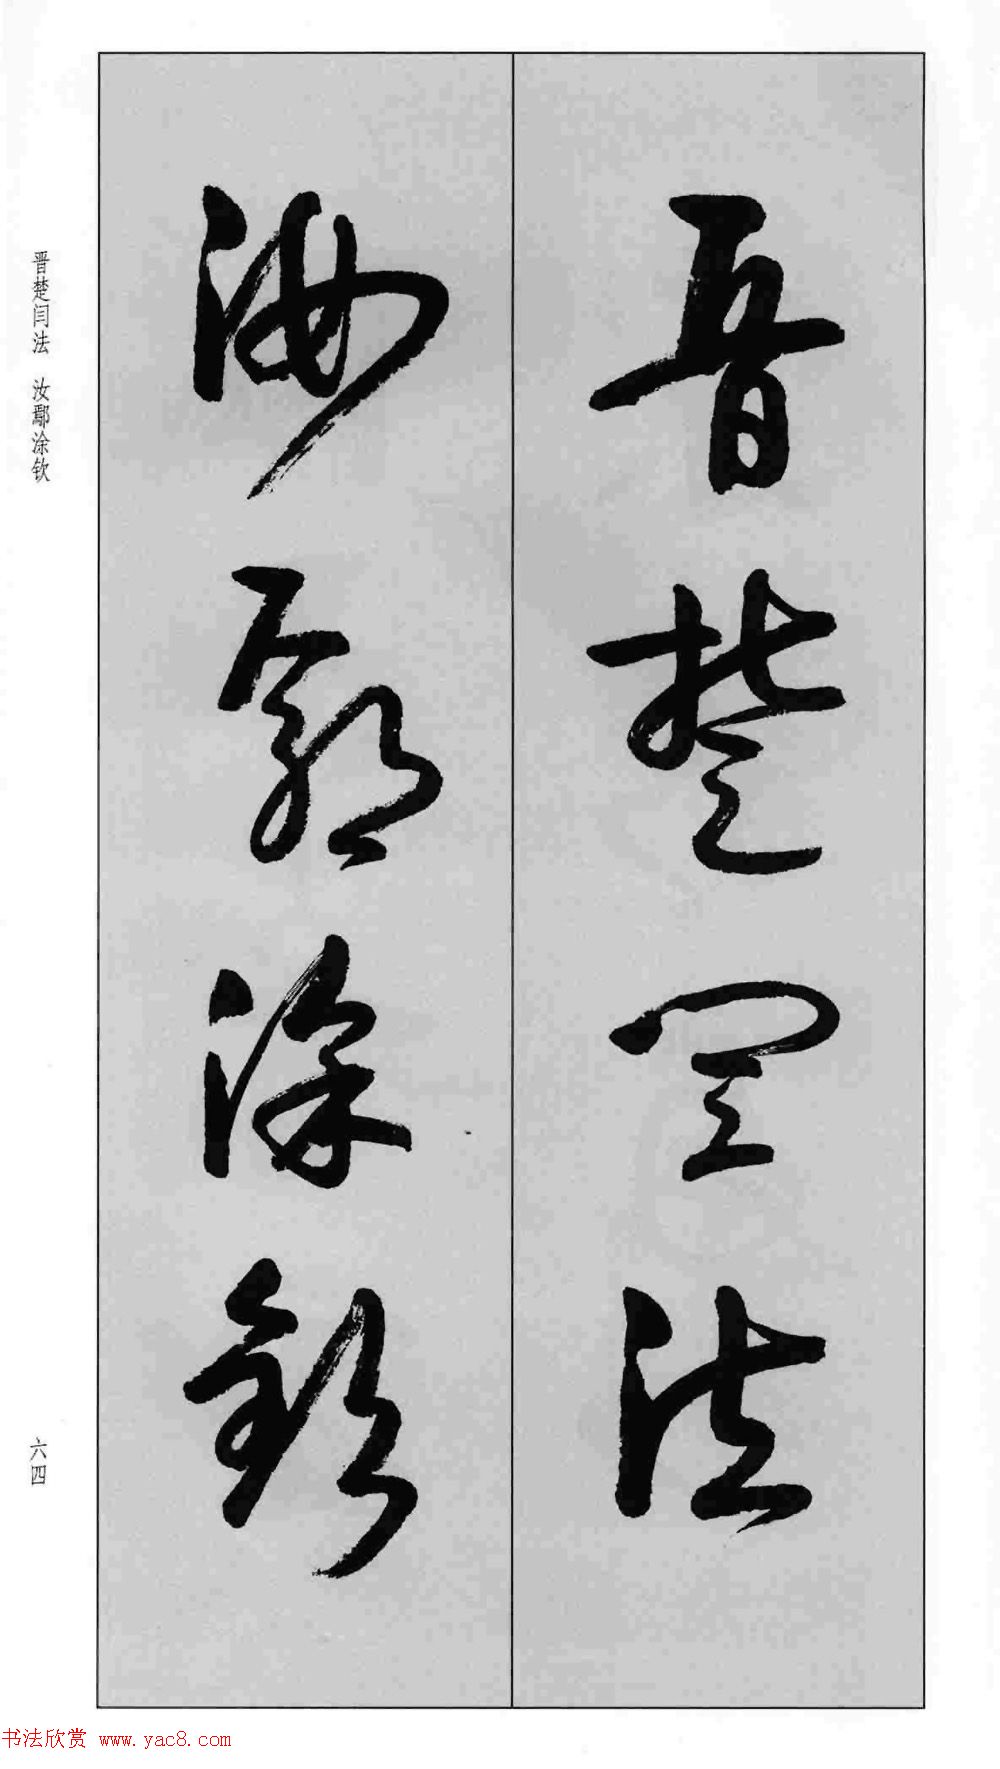 晋楚闫法
汝鄢涂钦
晋楚闫法 汝鄢涂钦
六四
书法欣赏 www.yac8.com